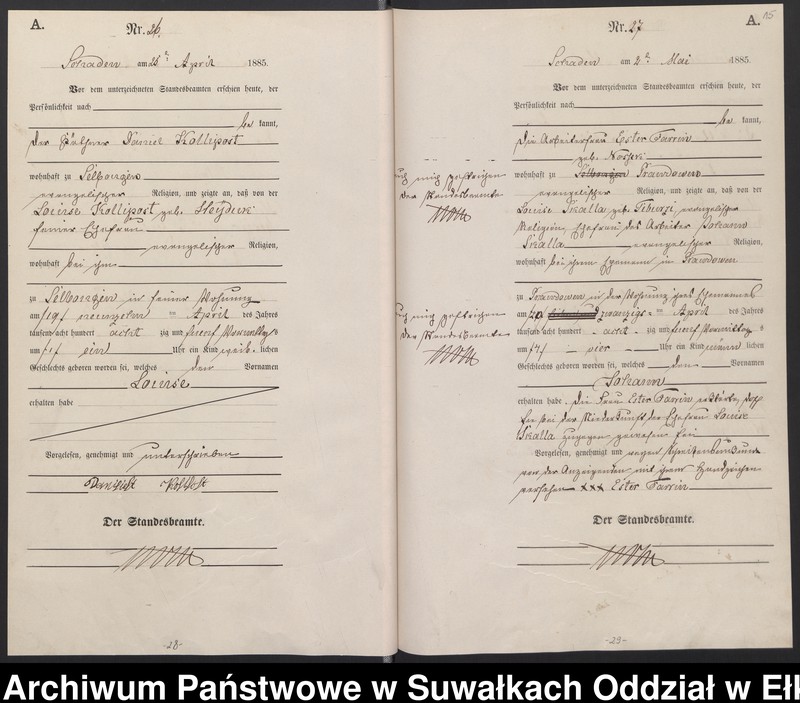 A.
Nr. 26.
Sczaden am 25 ten April 1885.
Vor dem unterzeichneten Standesbeamten erschien heute, der
Persönlichkeit nach
be kannt,
der Käthner Daniel Kollipost
wohnhaft zu Selbongen
evangelischer Religion, und zeigte an, daß von der
Louise Kollipost geb. Heyduck
seiner Ehefrau
evangelischer Religion,
wohnhaft bei ihm
zu Selbongen in seiner Wohnung
am 19 neunzehn ten April des Jahres
tausend acht hundert acht zig und fuenf Vormittags
um 1 ein Uhr ein Kind weib lichen
Geschlechts geboren worden sei, welches den Vornamen
Louise
erhalten habe
Vorgelesen, genehmigt und unterschrieben
Der Standesbeamte.
-28-
A. 15
Nr. 27
Sczaden am 2 ten Mai 1885.
Vor dem unterzeichneten Standesbeamten erschien heute, der
Persönlichkeit nach
be kannt,
die Arbeiterfrau Ester Farrin
geb.
wohnhaft zu Selbongen Prawdowen
evangelischer Religion, und zeigte an, daß von der
Louise Skalla geb. Tiburzi, evangelischer
Religion, Ehefrau des Arbeiter Johann
Skalla evangelischer Religion,
wohnhaft bei ihrem Ehemann in Prawdowen
zu Prawdowen in der Wohnung ihres Ehemannes
am 20 zwanzigs ten April des Jahres
tausend acht hundert acht zig und fuenf Vormittags
um 4 vier Uhr ein Kind männ lichen
Geschlechts geboren worden sei, welches den Vornamen
Johann
erhalten habe. Die Frau Ester Farrin erklärte, daß
sie bei der Niederkunft der Ehefrau Louise
Skalla zugegen gewesen sei
Vorgelesen, genehmigt und wegen Schreibensunkunde
von der Anzeigenden mit ihrem Handzeichen
versehen xxx Ester Farrin
Der Standesbeamte.
-29-
Archiwum Państwowe w Suwałkach Oddział w Ełk